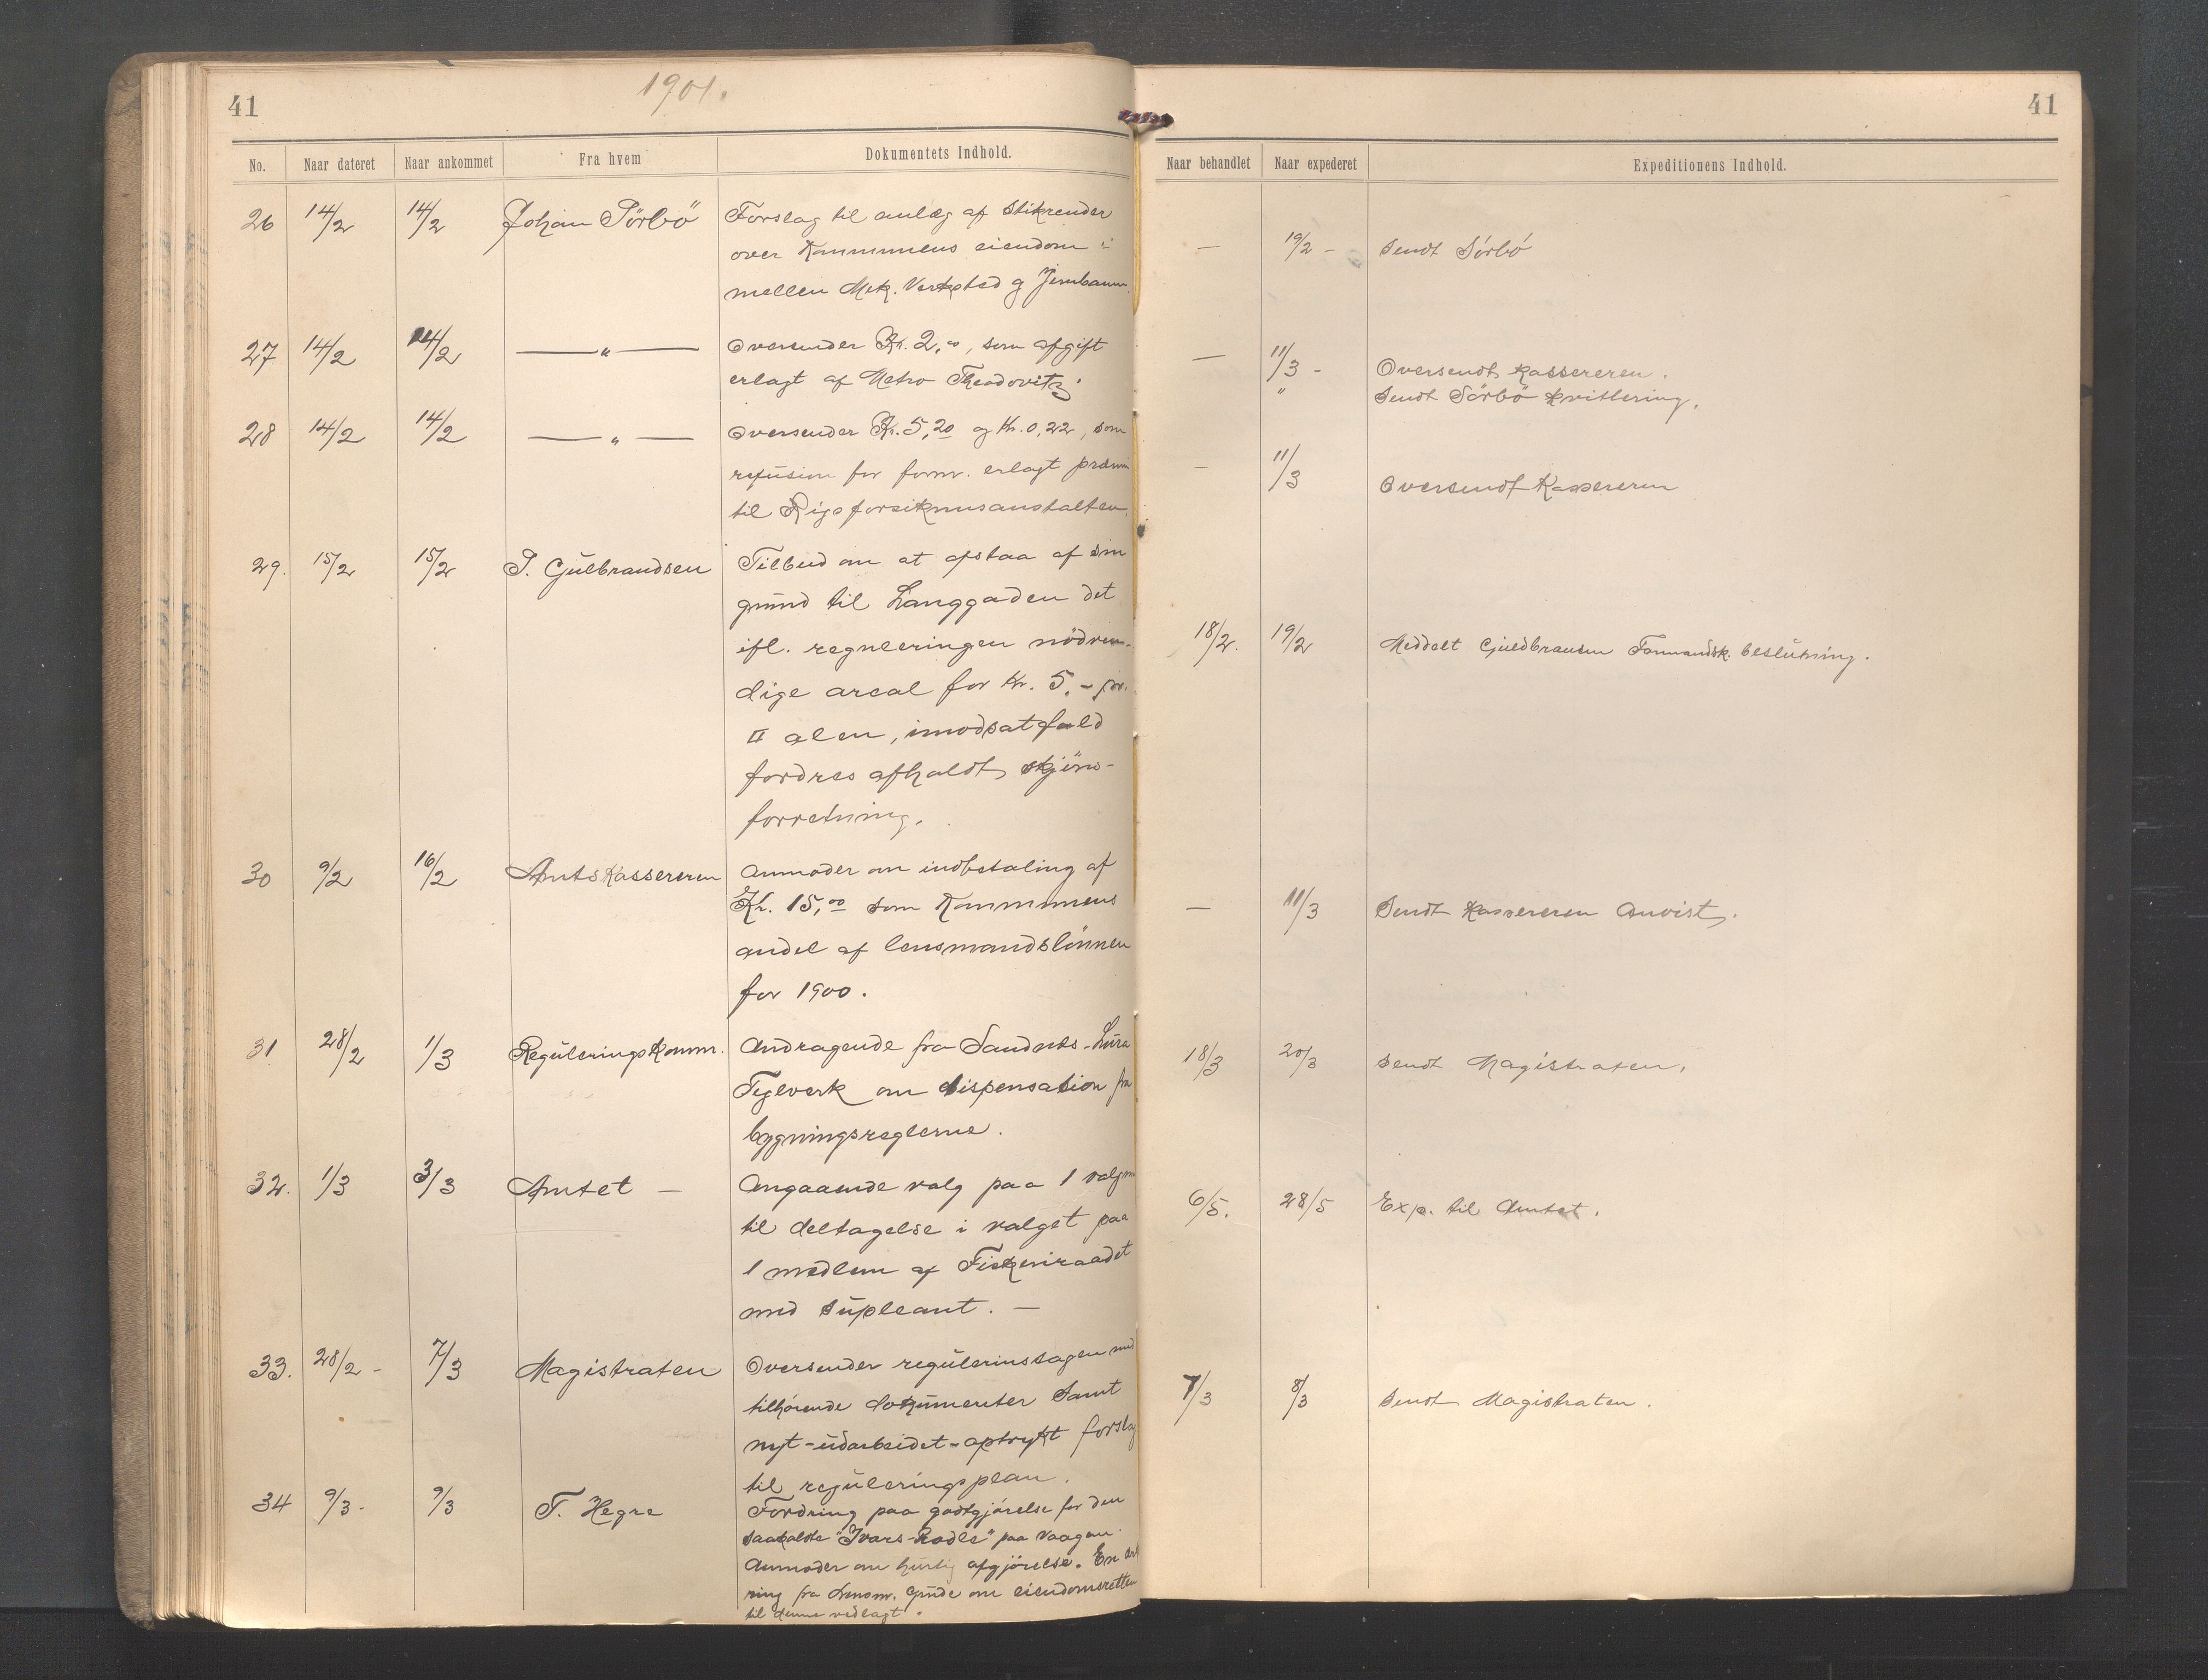 41
1901.
No. Naar dateret Naar ankommet Fra hvem Dokumentets Indhold.
26 14/2 14/2 Johan Sörbö Forslag til anlæg af Stikrender
over Kommunens eiendom i
mellem Mek. Verksted g Jernbanen.
27 14/2 14/2 —„— Oversender Kr. 2,00, som afgift
erlagt af Theodovitz.
28 14/2 14/2 —„— Oversender Kr. 5,20 og Kr. 0,22, som
refusion for form. erlagt præmie
til Rigsforsikrnusanstalten.
29. 15/2 15/2 P. Gulbrandsen Tilbud om at afstaa af sin
grund til Langgaden det
ifl. reguleringen nödven-
dige areal for Kr. 5,- pr.
□ alen, imodsatfald
fordres afholdt skjöns-
forretning.
30 9/2 16/2 Amtskassereren Anmoder om indbetaling af
Kr. 15,00 som Kommunens
andel af lensmandslönnen
for 1900.
31 28/2 1/3 Reguleringskomm. Andragende fra Sandnes-Lura
Teglverk om dispensation fra
bygningsreglerne.
32. 1/3 3/3 Amtet — Angaaende valg paa 1 valgm
til deltagelse i valget paa
1 medlem af Fiskeriraadet
med Supleant. —
33. 28/2 - 7/3 Magistraten Oversender regulerinssagen med
tilhörende dokumenter Samt
nyt-udarbeidet-optrykt forslag
til reguleringsplan.
34 9/3 - 9/3 T. Hegre Fordring paa godtgjörelse for den
saakaldte "Ivars-Rodle" paa Vaagen.
Anmoder om hurtig afgjörelse. En erk
ring fra Lensm. Gude om eiendomsretten
til denne vedlagt.
41
Naar behandlet Naar expederet Expeditionens Indhold.
— 19/2 - Sendt Sörbö
— 11/3 - Oversendt Kassereren.
" Sendt Sörbö kvittering.
- 11/3 Oversendt Kassereren
18/2. 19/2 Meddelt Guldbransen Formandsk. beslutning.
— 11/3 Sendt Kassereren Anvist.
18/3 20/3 Sendt Magistraten.
6/5. 28/5 Exp. til Amtet.
7/3 8/3 Sendt Magistraten.